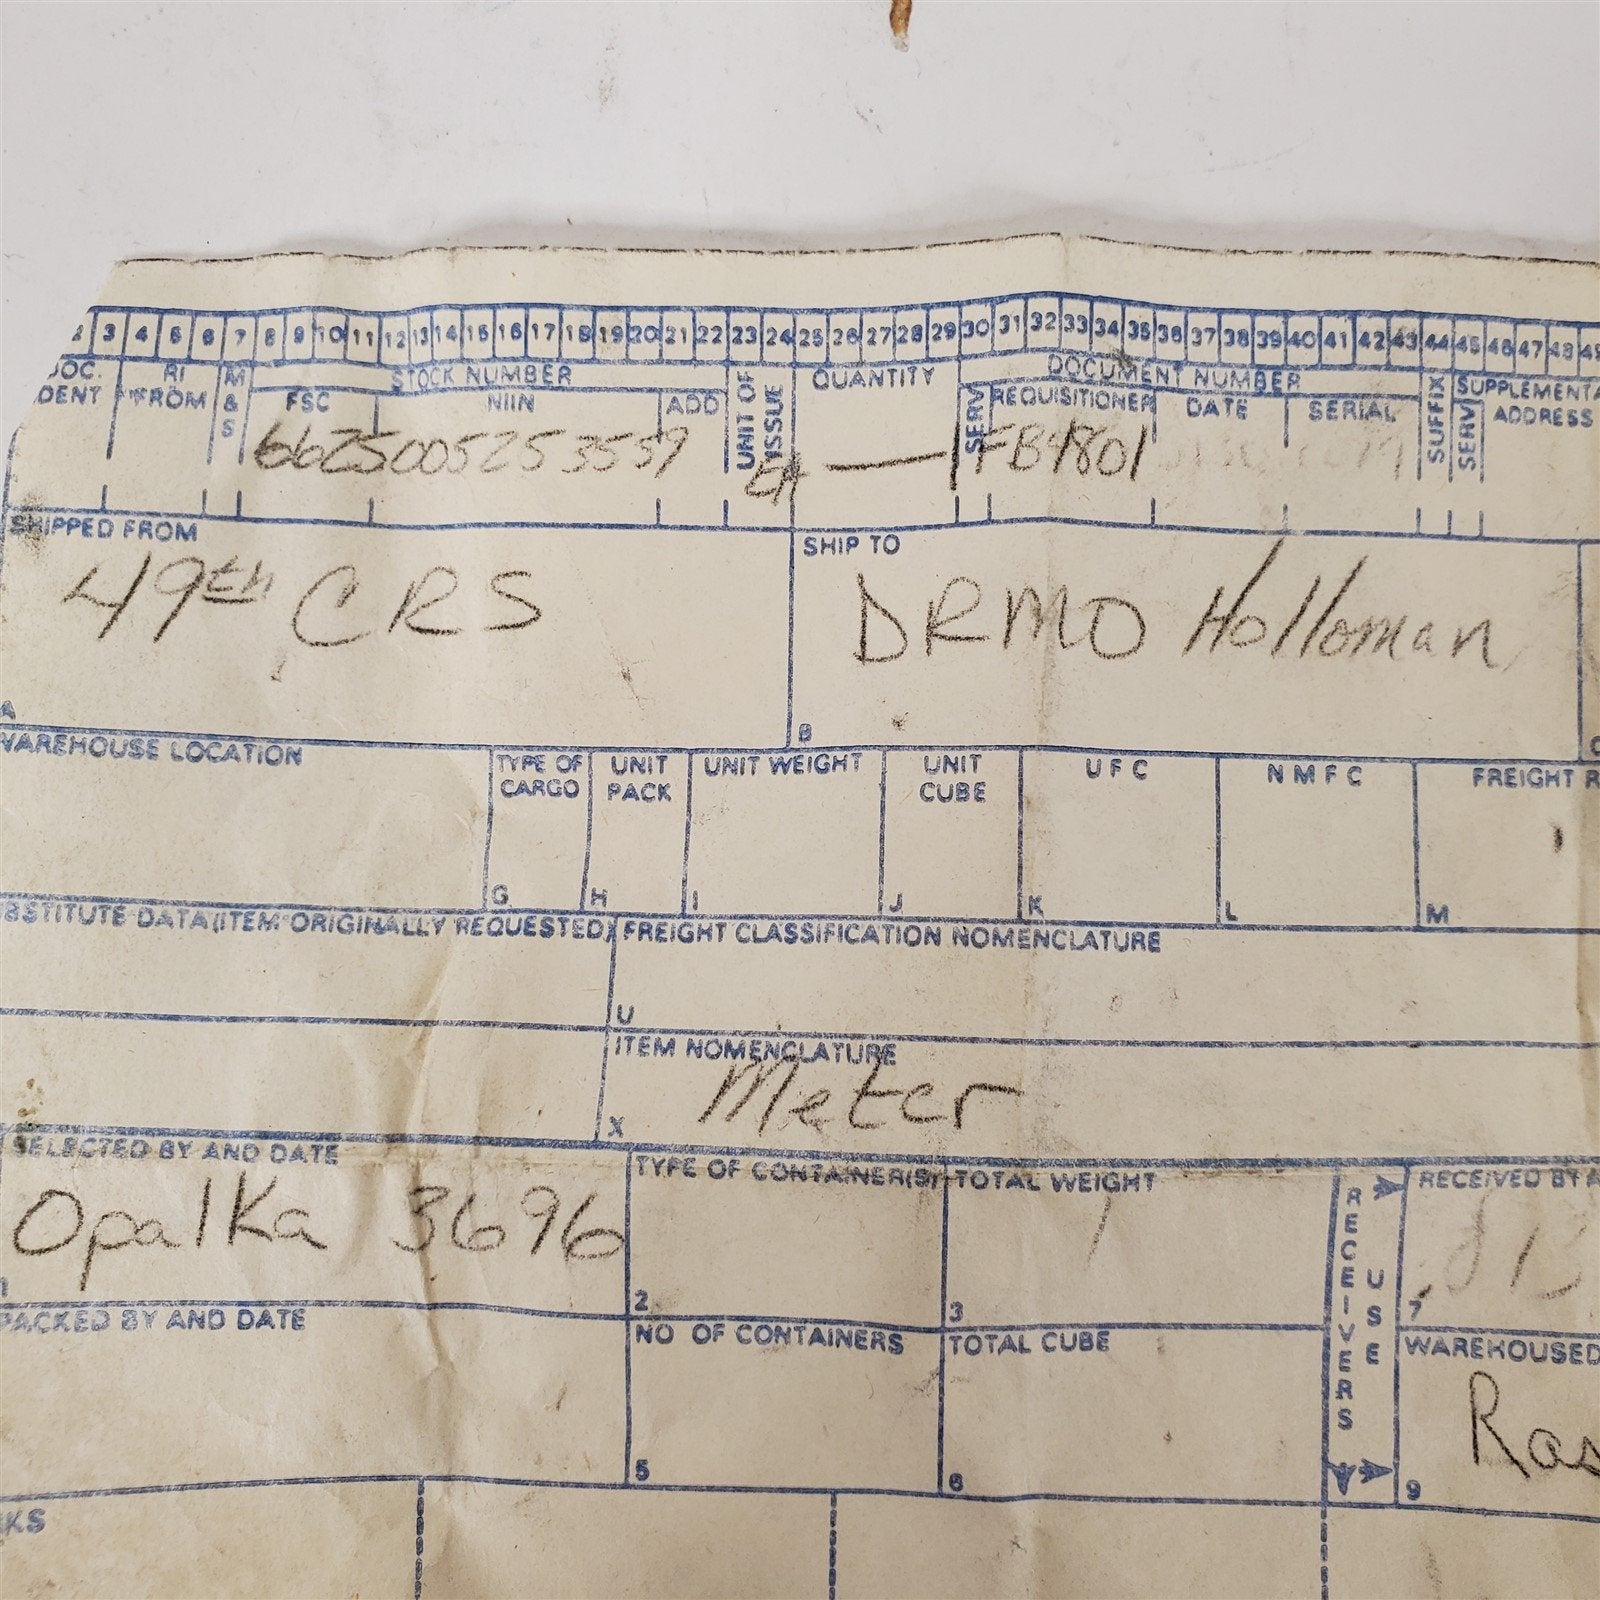 2 3 4 5 6 7 8 9 10 11 12 13 14 15 16 17 18 19 20 21 22 23 24 25 26 27 28 29 30 31 32 33 34 35 36 37 38 39 40 41 42 43 44 45 46 47 48 49
DOC. IDENT RI FROM M & S STOCK NUMBER UNIT OF ISSUE QUANTITY DOCUMENT NUMBER SUFFIX SUPPLEMENTA
FSC NIIN ADD SERV REQUISITIONER DATE SERIAL SERV ADDRESS
6625005253559 EA — FB4801
SHIPPED FROM SHIP TO
49th CRS DRMO Holloman
A B
WAREHOUSE LOCATION TYPE OF CARGO UNIT PACK UNIT WEIGHT UNIT CUBE UFC NMFC FREIGHT R
G H I J K L M
BSTITUTE DATA (ITEM ORIGINALLY REQUESTED) FREIGHT CLASSIFICATION NOMENCLATURE
U
ITEM NOMENCLATURE
Meter
X
SELECTED BY AND DATE TYPE OF CONTAINER(S) TOTAL WEIGHT RECEIVERS USE RECEIVED BY A
Opalka 3696
1 2 3 7
PACKED BY AND DATE NO OF CONTAINERS TOTAL CUBE WAREHOUSED
Ras
5 6 9
KS